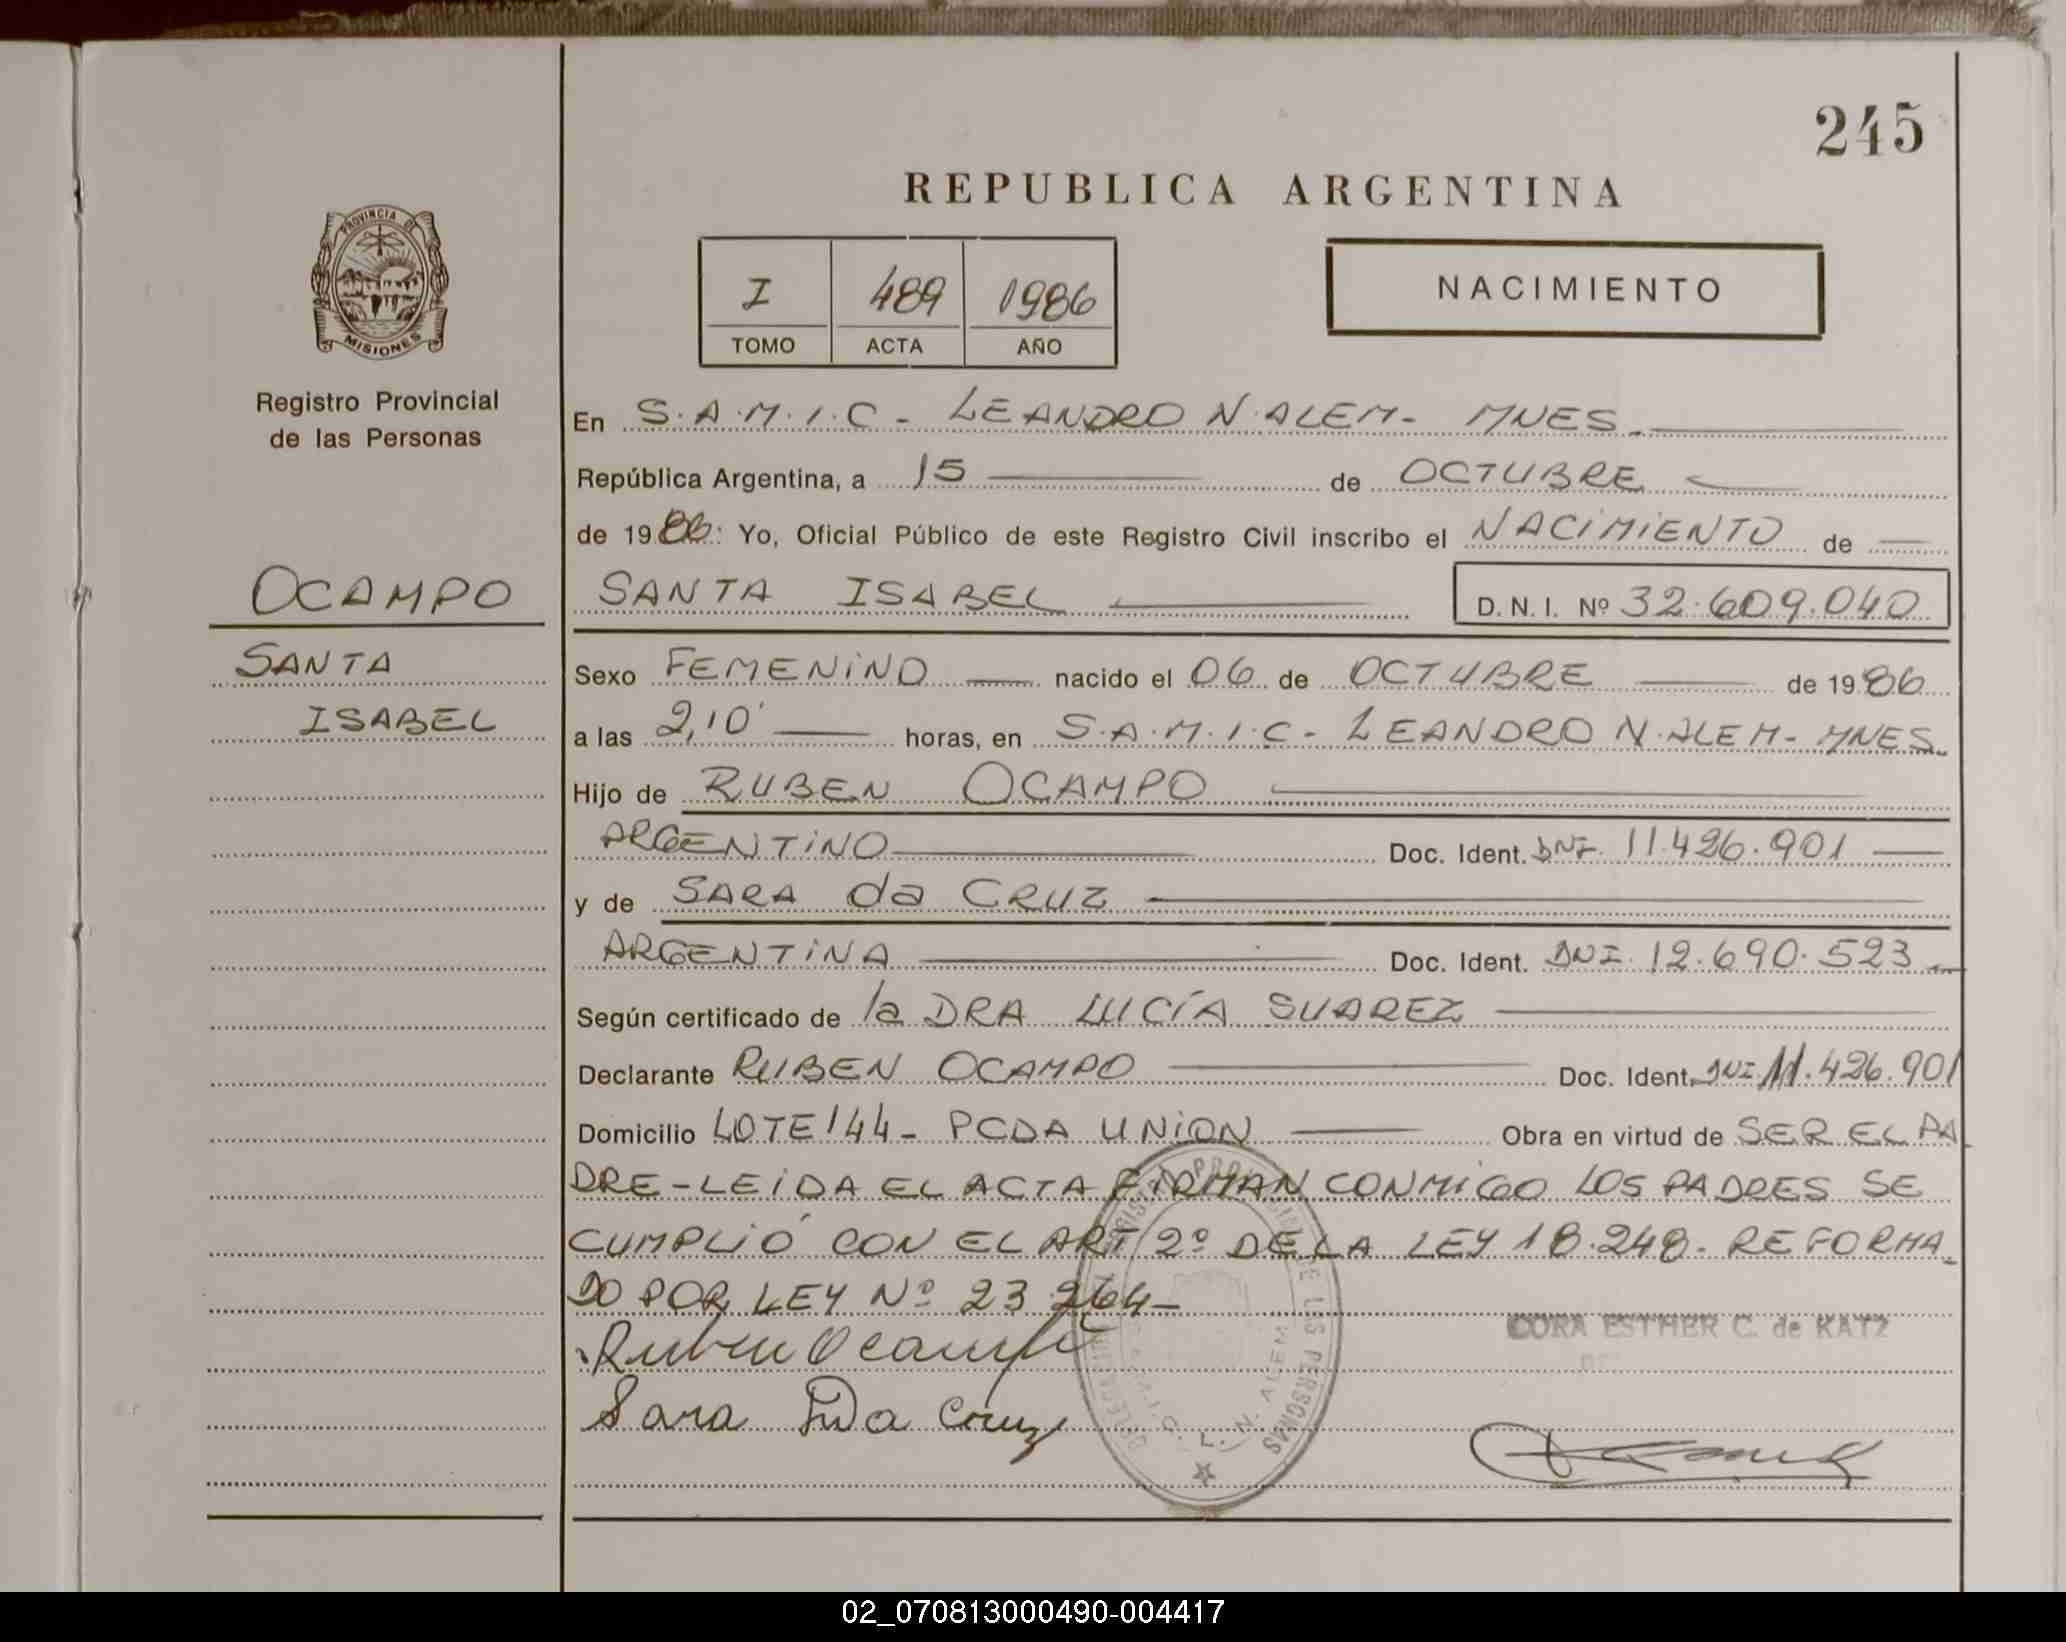 245
REPUBLICA ARGENTINA
PROVINCIA DE
MISIONES
Registro Provincial
de las Personas
I 489 1986
TOMO ACTA AÑO
NACIMIENTO
En S.A.M.I.C - LEANDRO N. ALEM - MNES.
República Argentina, a 15 de OCTUBRE
de 1986: Yo, Oficial Público de este Registro Civil inscribo el NACIMIENTO de
OCAMPO
SANTA ISABEL D.N.I. Nº 32.609.040
SANTA
ISABEL
Sexo FEMENINO nacido el 06 de OCTUBRE de 1986
a las 2,10' horas, en S.A.M.I.C - LEANDRO N. ALEM - MNES.
Hijo de RUBEN OCAMPO
ARGENTINO Doc. Ident. DNI. 11.426.901
y de SARA da CRUZ
ARGENTINA Doc. Ident. DNI. 12.690.523
Según certificado de la DRA LUCÍA SUAREZ
Declarante RUBEN OCAMPO Doc. Ident. DNI 11.426.901
Domicilio LOTE 144 - PCDA UNION Obra en virtud de SER EL PA
DRE - LEIDA EL ACTA FIRMAN CONMIGO LOS PADRES SE
CUMPLIÓ CON EL ART 2º DE LA LEY 18.248. REFORMA_
DO POR LEY Nº 23.264 -
CORA ESTHER C. de KATZ
Ruben Ocampo
Sara Da Cruz
DE LAS PERSONAS
L. N. ALEM
02_070813000490-004417